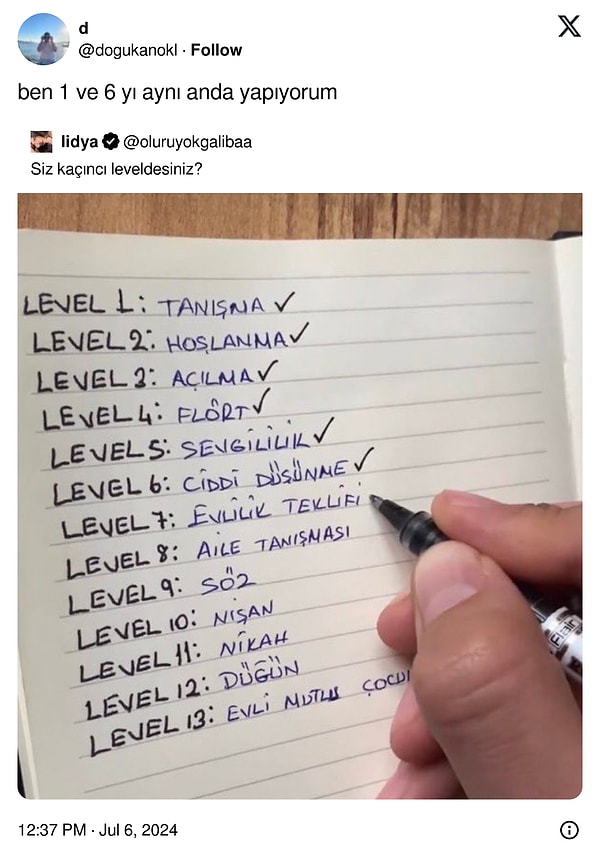 d
@dogukanokl · Follow
ben 1 ve 6 yı aynı anda yapıyorum
lidya @oluruyokgalibaa
Siz kaçıncı leveldesiniz?
LEVEL 1: TANIŞMA ✓
LEVEL 2: HOŞLANMA ✓
LEVEL 3: AÇILMA ✓
LEVEL 4: FLÖRT ✓
LEVEL 5: SEVGİLİLİK ✓
LEVEL 6: CİDDİ DÜŞÜNME ✓
LEVEL 7: EVLİLİK TEKLİFİ
LEVEL 8: AİLE TANIŞMASI
LEVEL 9: SÖZ
LEVEL 10: NİŞAN
LEVEL 11: NİKAH
LEVEL 12: DÜĞÜN
LEVEL 13: EVLİ MUTLU ÇOCU
12:37 PM · Jul 6, 2024